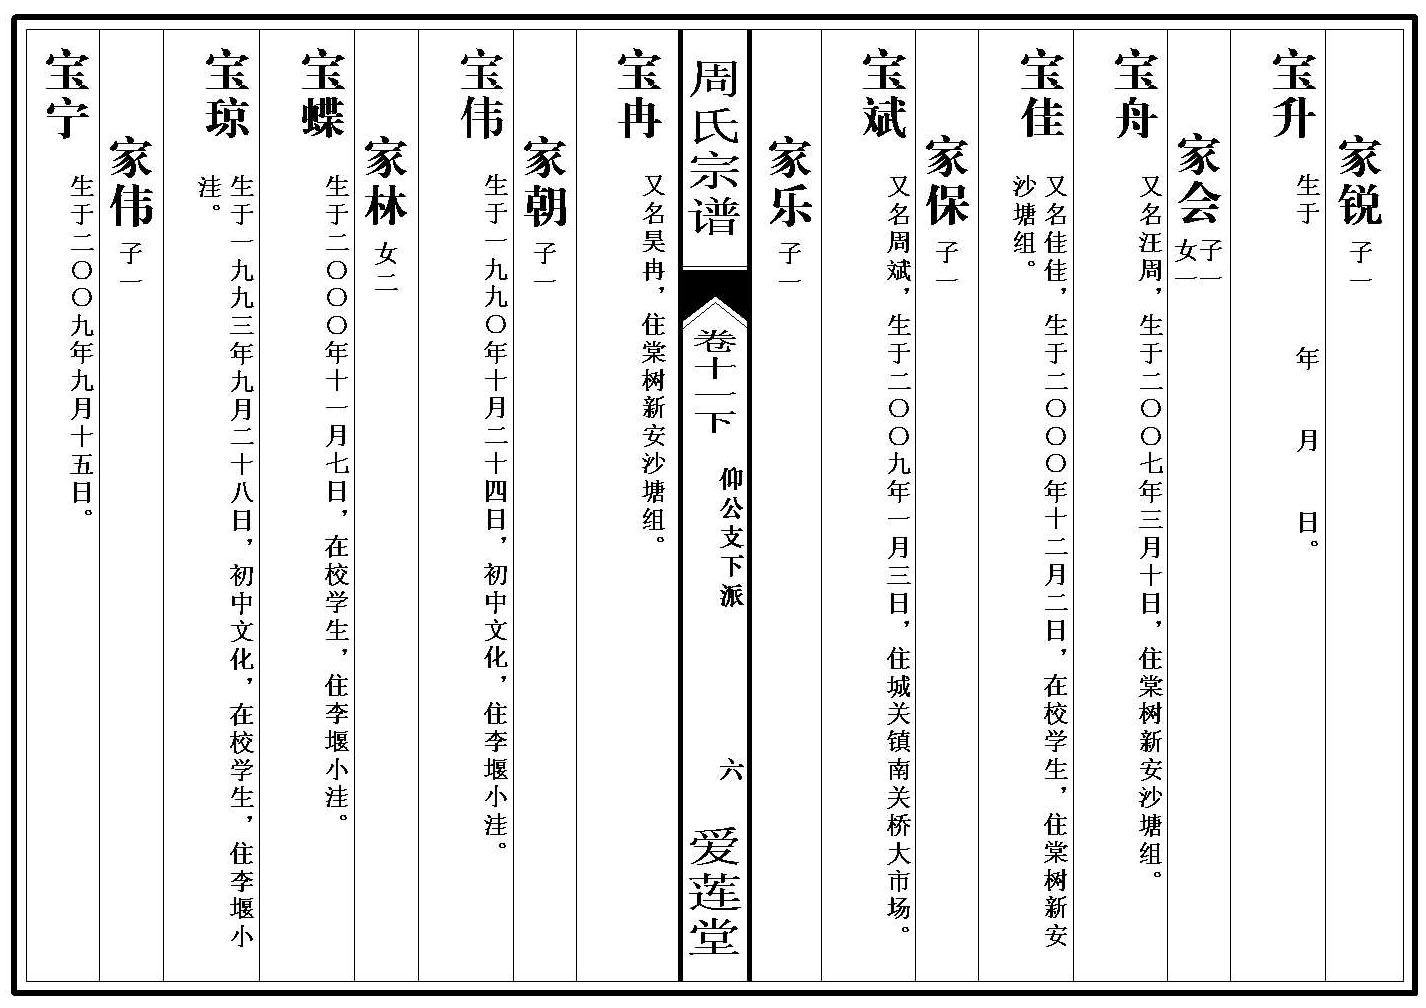 家锐 子一
宝升 生于 年 月 日。
家会 子一 女一
宝舟 又名汪周，生于二〇〇七年三月十日，住棠树新安沙塘组。
宝佳 又名佳佳，生于二〇〇〇年十二月二日，在校学生，住棠树新安
沙塘组。
家保 子一
宝斌 又名周斌，生于二〇〇九年一月三日，住城关镇南关桥大市场。
家乐 子一
周氏宗谱 卷十一下 仰公支下派 六 爱莲堂
宝冉 又名昊冉，住棠树新安沙塘组。
家朝 子一
宝伟 生于一九九〇年十月二十四日，初中文化，住李堰小洼。
家林 女二
宝蝶 生于二〇〇〇年十一月七日，在校学生，住李堰小洼。
宝琼 生于一九九三年九月二十八日，初中文化，在校学生，住李堰小
洼。
家伟 子一
宝宁 生于二〇〇九年九月十五日。